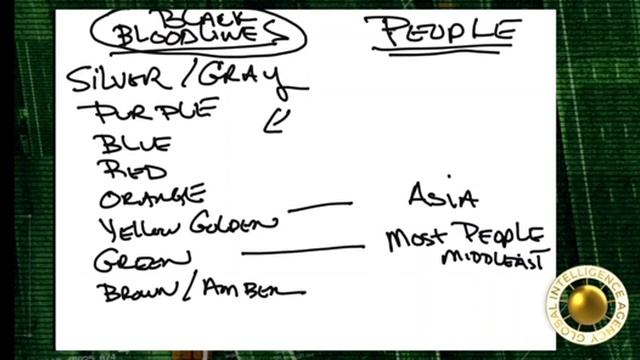 BLACK
BLOODLINES
PEOPLE
SILVER/GRAY
PURPLE
BLUE
RED
ORANGE
YELLOW GOLDEN
ASIA
GREEN
MOST PEOPLE
MIDDLEAST
BROWN/AMBER
GLOBAL INTELLIGENCE AGENCY